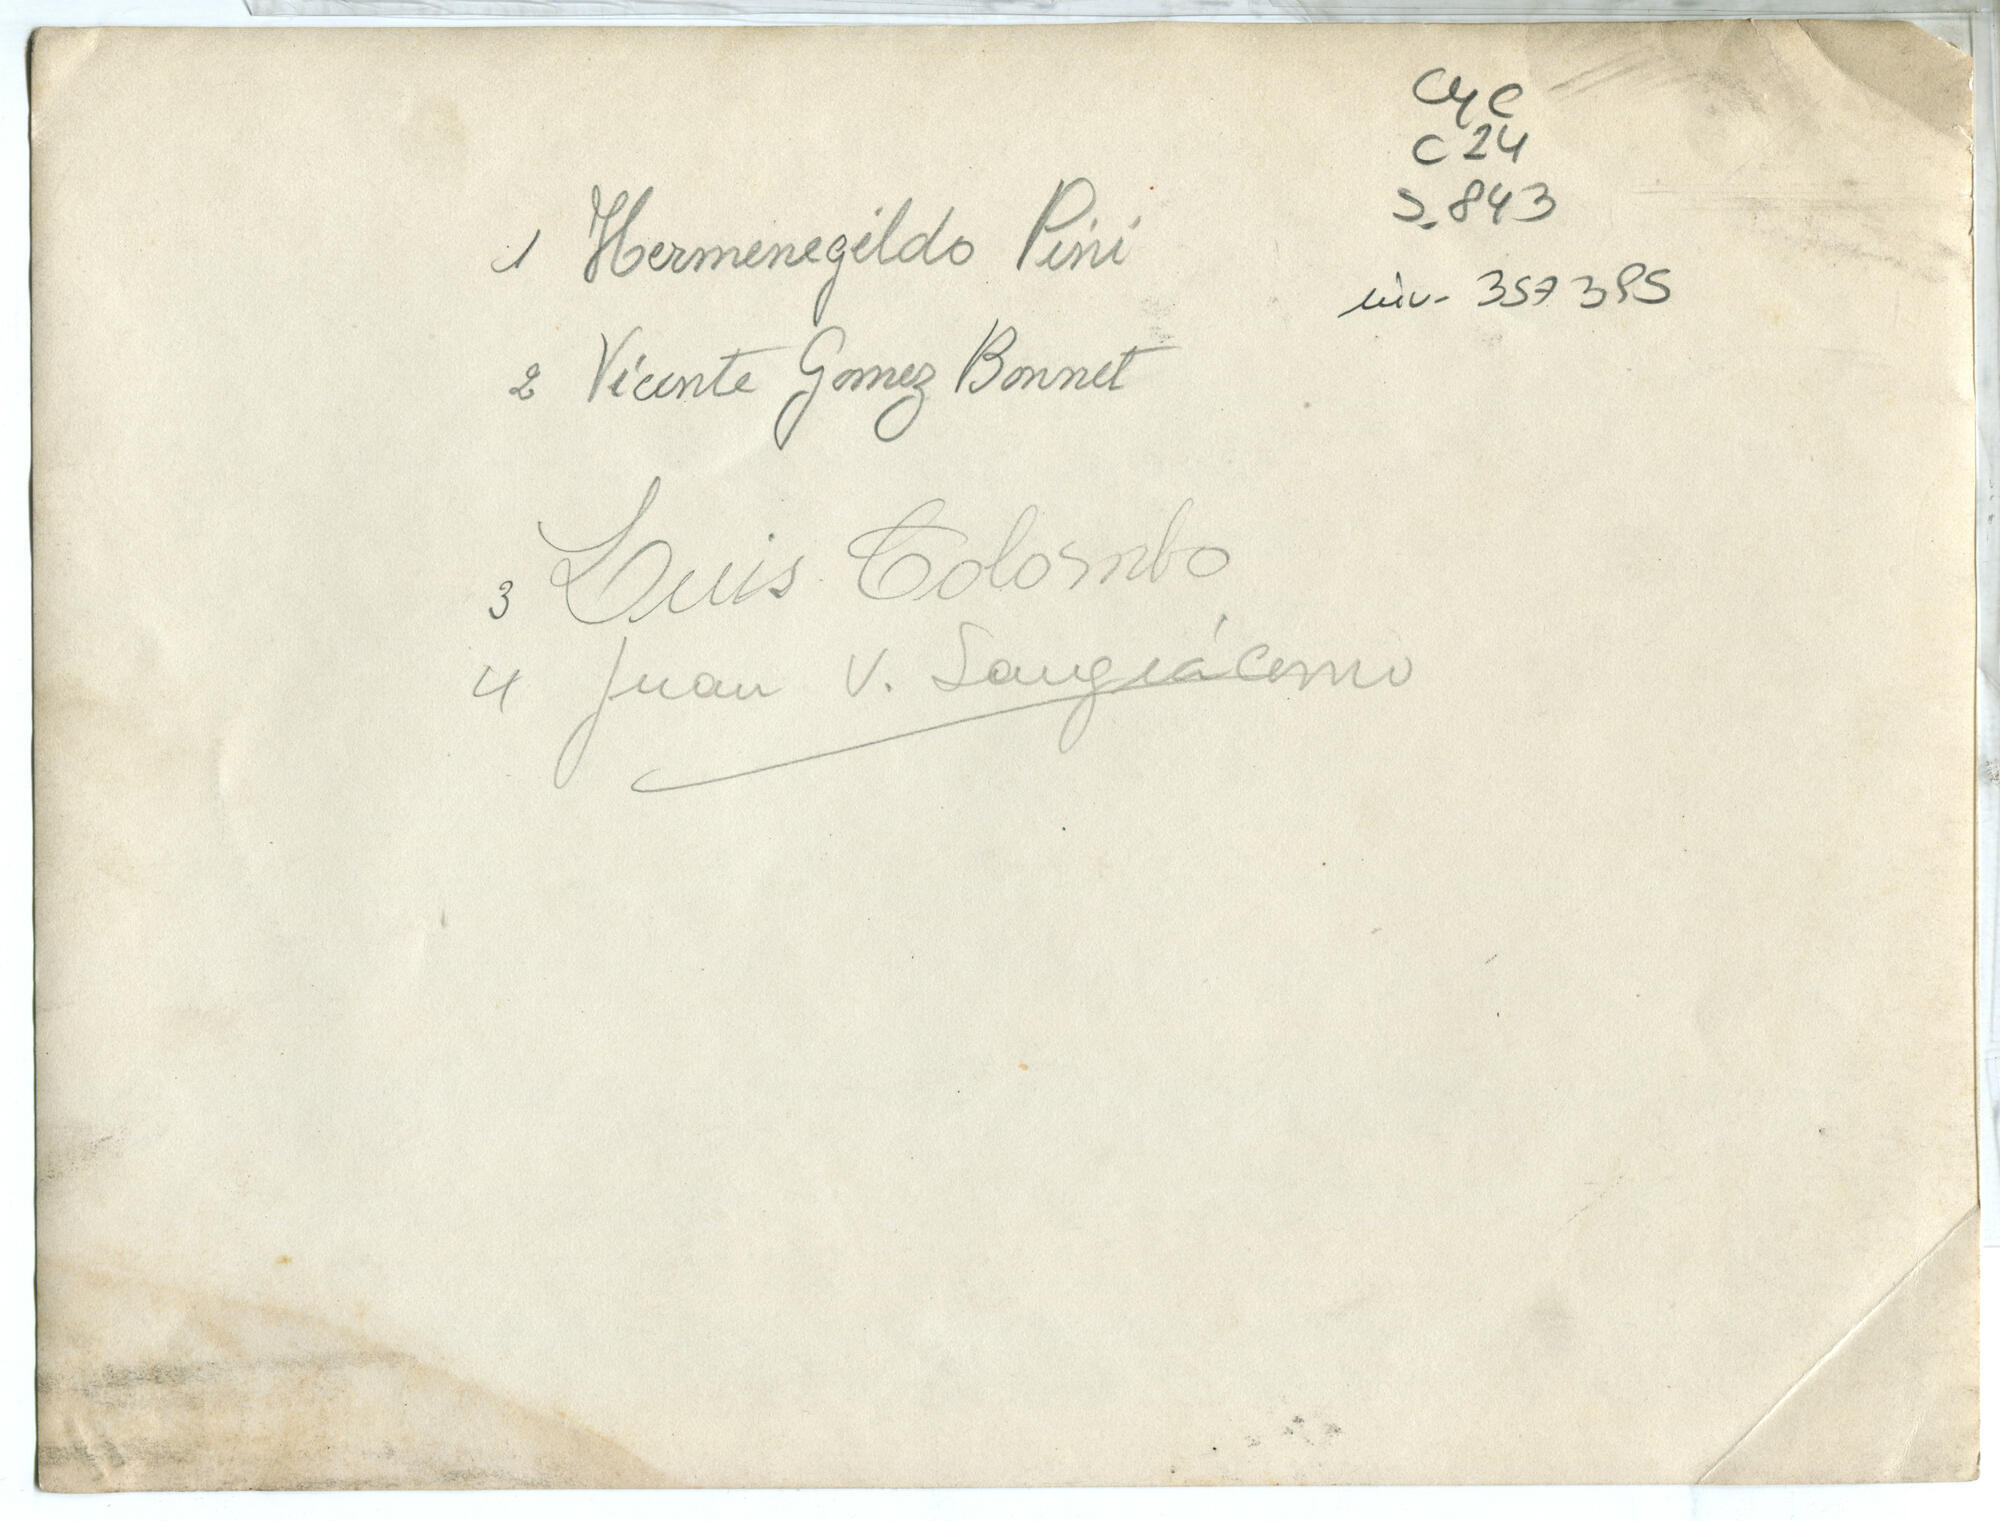 CyC
C 24
S. 843
inv- 357 395
1 Hermenegildo Pini
2 Vicente Gomez Bonnet
3 Luis Colombo
4 Juan V. Sangiácomo